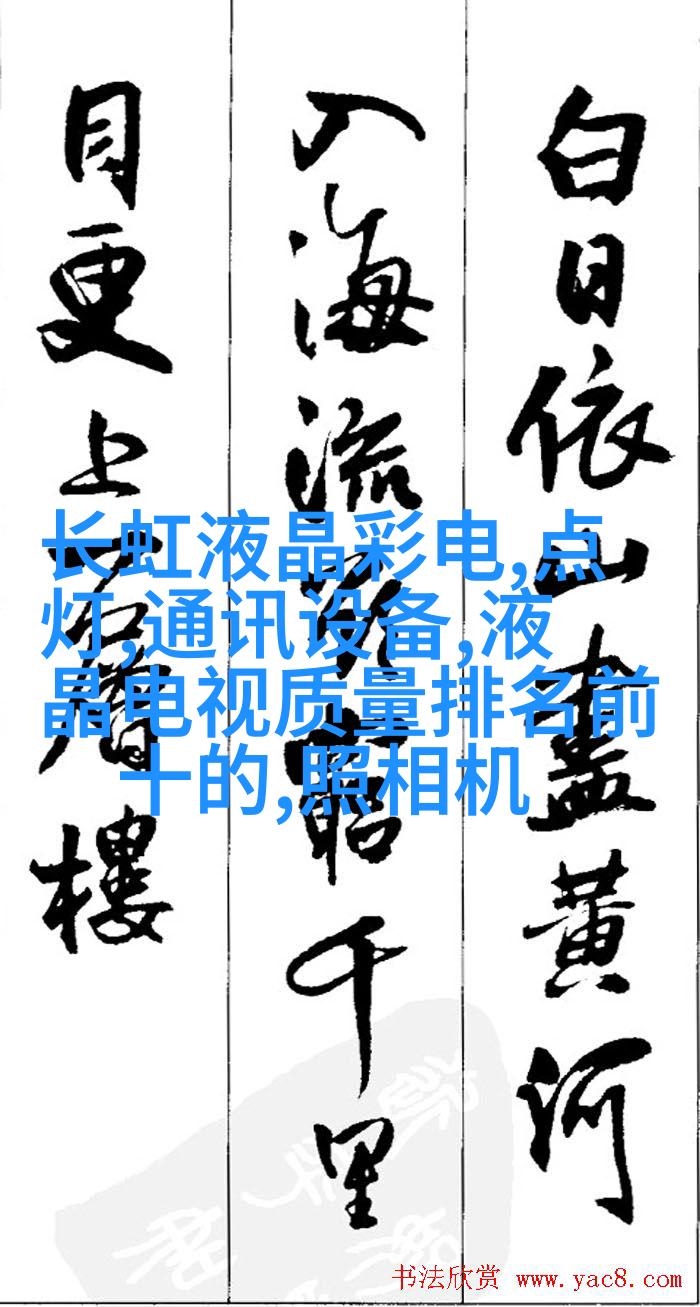 白日依山盡黃河
入海流欲窮千里
目更上一層樓
长虹液晶彩电,点
灯,通讯设备,液
晶电视质量排名前
十的,照相机
书法欣赏 www.yac8.com